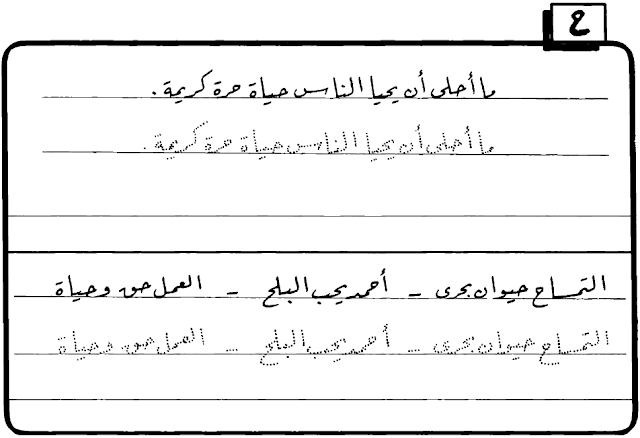 ح
ما أحلى أن يحيا الناس حياة حرة كريمة .
ما أحلى أن يحيا الناس حياة حرة كريمة .
التمساح حيوان بحرى – أحمد يحب البلح – العمل حق وحياة
التمساح حيوان بحرى – أحمد يحب البلح – العمل حق وحياة